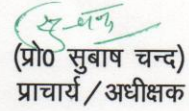 (प्रो0 सुबाष चन्द)
प्राचार्य / अधीक्षक